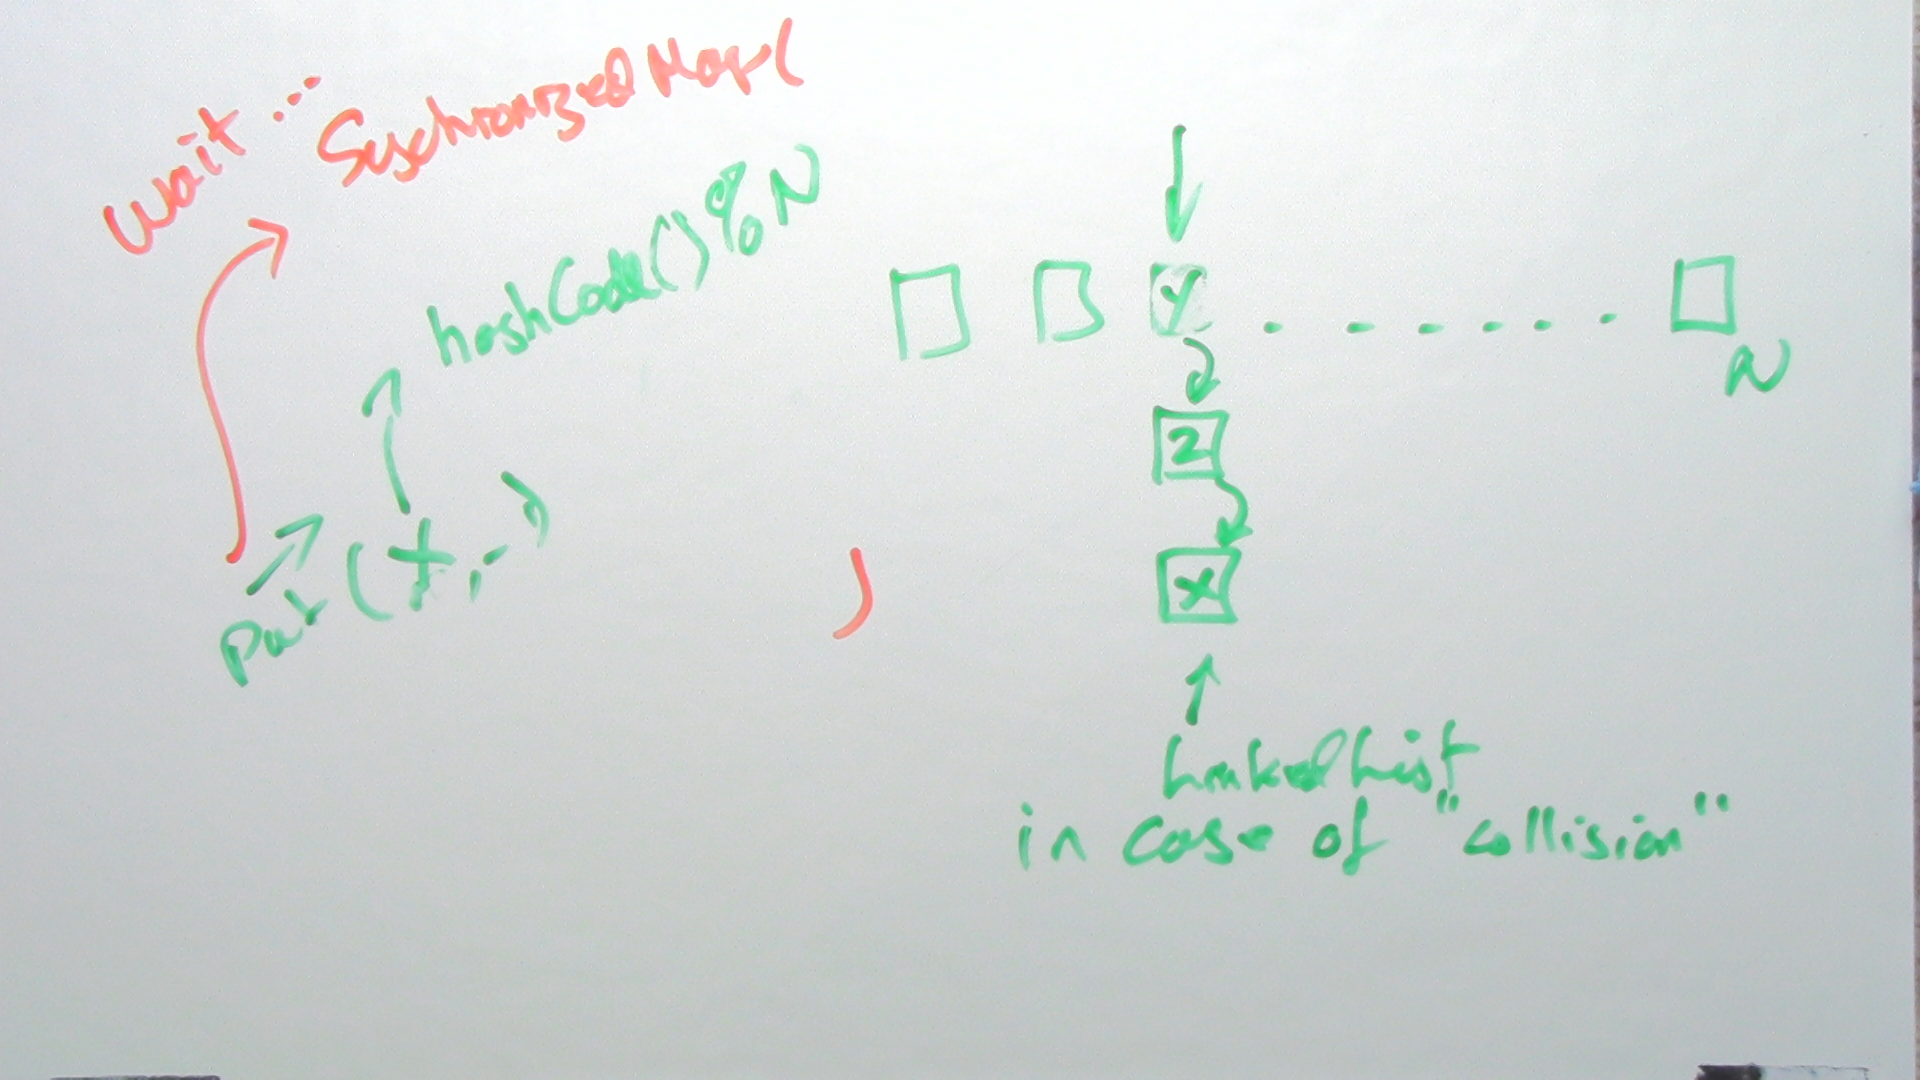 wait ...
SychronizedMap(
hashCode() % N
put (x, -)
)
Y
N
2
x
LinkedList
in case of "collision"